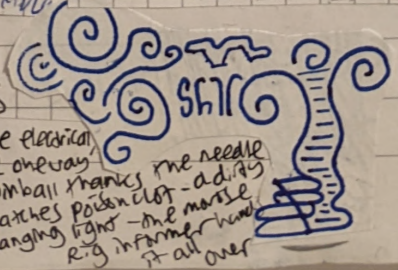 e electrical
one way,
inball thanks the needle
atches poison clot - a dirty
anging light - the morose
Rig informer hands
it all over